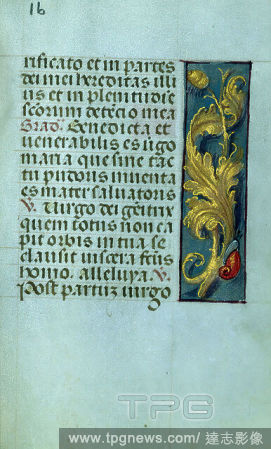 16
rificato et in partes
dei mei hereditas illi
us et in plenitudīe
scorum detētio mea
Grad. Benedicta et
venerabilis es v̄go
maria que sine tac
tu pudoris inventa
es mater salvatoris
V. Virgo dei genitrix
quem totus non ca
pit orbis in tua se
clausit viscera factus
homo. alleluya. V.
Post partuz virgo
TPG
www.tpgnews.com/ 達志影像